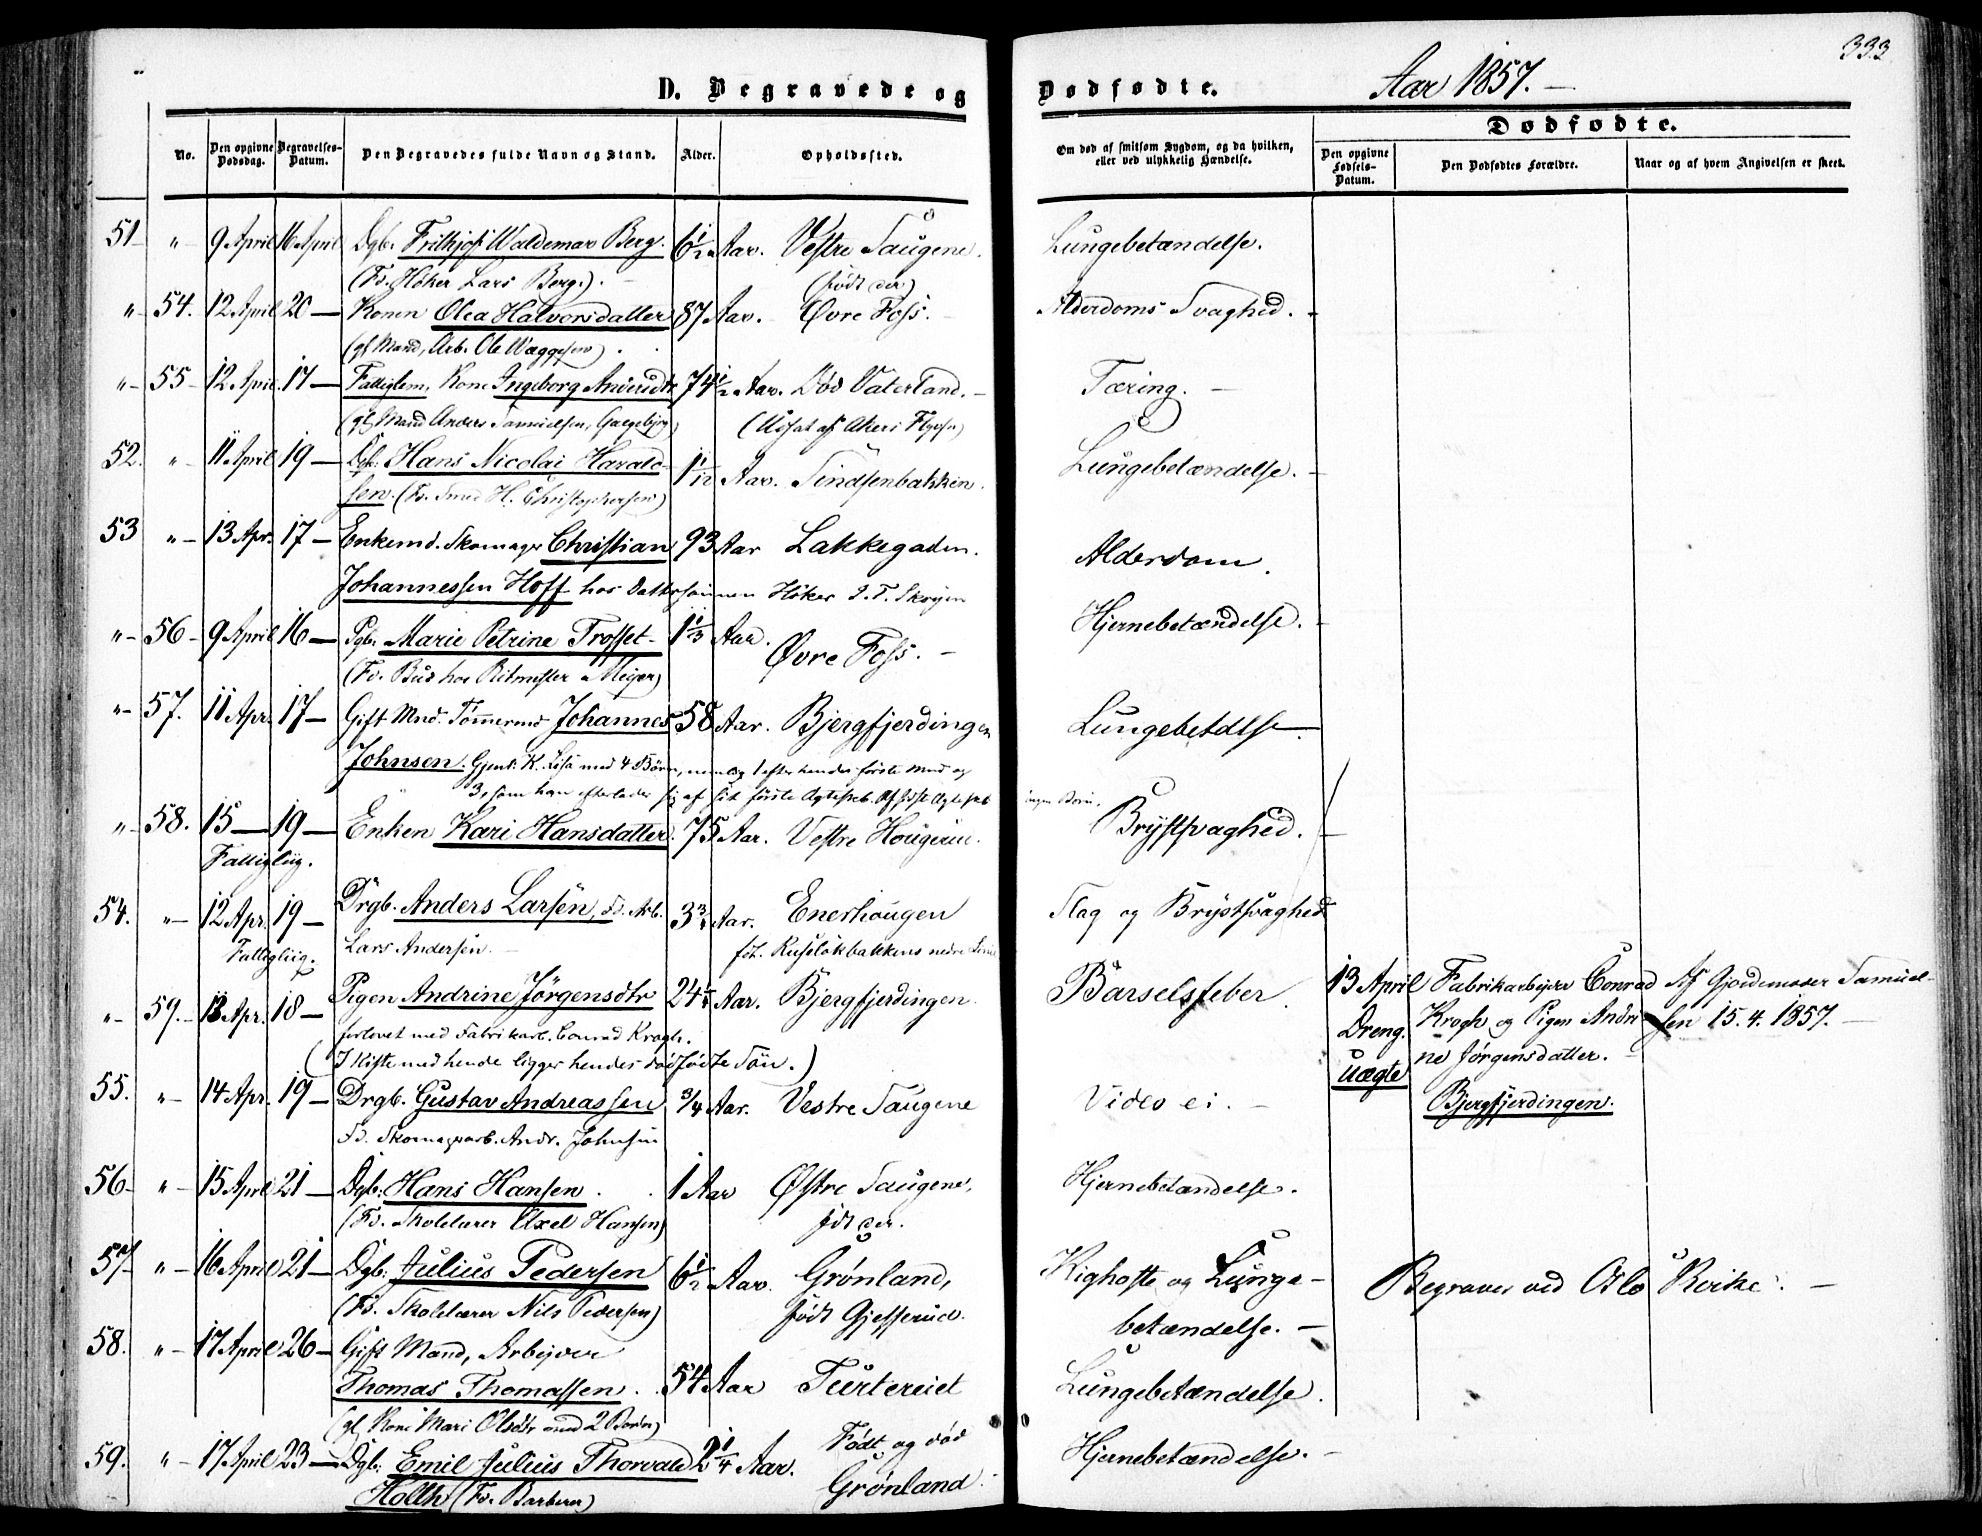 333
D. Begravede og Dødfødte. Aar 1857. —
Dødfødte.
No. Den opgivne Dødsdag. Begravelses-Datum. Den Begravedes fulde Navn og Stand. Alder. Opholdssted. Om død af smitsom Sygdom, og da hvilken, eller ved ulykkelig Hændelse. Den opgivne Fødsels-Datum. Den Dødfødtes Forældre. Naar og af hvem Angivelsen er skeet.
51 " 9 April 16 April Dgb. Frithjof Waldemar Berg. 6 1/2 Aar. Vestre Saugene. Lungebetændelse.
(Fd. Høker Lars Berg.) (født der)
" 54. 12 April 20 — Konen Olea Halvorsdatter 87 Aar. Øvre Foss. Alderdoms Svaghed. —
(gl Mand, Arb. Ole Waggesen)
" 55 12 April 17 — Fattiglem, Kone Ingeborg 74 1/2 Aar. Død Vaterland. — Tæring. —
(gl Mand Anders Samuelsen,
52. " 11 April 19 — Dgb. Hans Nicolai Harald- 1 1/12 Aar. Sindsenbakken. Lungebetændelse. —
sen. (Fd. Smed H. Christophersen)
53 " 13 Apr. 17 — Enkemd. Skomager Christian 93 Aar Lakkegaden. Alderdom.
Johannessen Hoff hos Dattersønnen Høker
" 56 9 April 16 — Pgb. Marie Petrine Trosset 1 1/3 Aar. Øvre Foss. — Hjernebetændelse. —
(Fd. Bud hos Ritmester Meyer)
" 57. 11 Apr. 17 — Gift Mnd. Tømmermd Johannes 58 Aar. Bjergfjerdingen Lungebetdlse.
Johnsen. Gjenl. K. Lisa med 4 Børn, nemlig 1 efter hendes første Mnd og
3, som han efterlader sig af sit første Ægteskab. Af sidste Ægteskab ingen Børn.
" 58. 15 — 19 — Enken Kari Hansdatter. 75 Aar. Vestre Hougerud. Brystsvaghed. —
Fattiglig.
54. " 12 Apr. 19 — Drgb. Anders Larsen, Fd. Arb. 3 3/4 Aar. Enerhougen Slag og Brystsvaghed
Fattiglig. Lars Andersen. — fdt. Ruseløkbakkens nedre
" 59. 13 Apr. 18 — Pigen Andrine Jörgensdtr 24 1/4 Aar. Bjergfjerdingen. Barselsfeber. 13 April Fabrikarbejder Conrad Af Gjordemoder Samuel-
forlovet med Fabrikarb. Conrad Krogh. Dreng. Krogh og Pigen Andri- sen 15. 4. 1857. —
(I Kiste med hende ligger hendes dødfødte Søn.) Uægte ne Jørgensdatter. —
Bjergfjerdingen.
55. " 14 Apr. 19 — Drgb. Gustav Andreassen 3/4 Aar. Vestre Saugene Vides ei. —
Fd. Skomagerarb. Andr. Johnsen
56 " 15 April 21 — Dgb: Hans Hansen. 1 Aar Østre Saugene, Hjernebetændelse.
(Fd. Skolelærer Axel Hansen) fdt der.
57 " 16 April 21 — Dgb: Julius Pedersen 6 1/2 Aar. Grønland, Kighoste og Lunge- Begraves ved Oslo Kirke. —
(Fd. Skolelærer Nils Pedersen) født Gjesserud. betændelse. —
58. " 17 April 26 — Gift Mand, Arbejder
Thomas Thomassen. 54 Aar Turtereiet Lungebetændelse.
(gl Kone Mari Olsdtr med 2 Børn)
59. " 17 April 23 — Dgb. Emil Julius Thorvald 2 1/4 Aar. Født og død Grønland. Hjernebetændelse. —
Holth (Fd. Barberer)